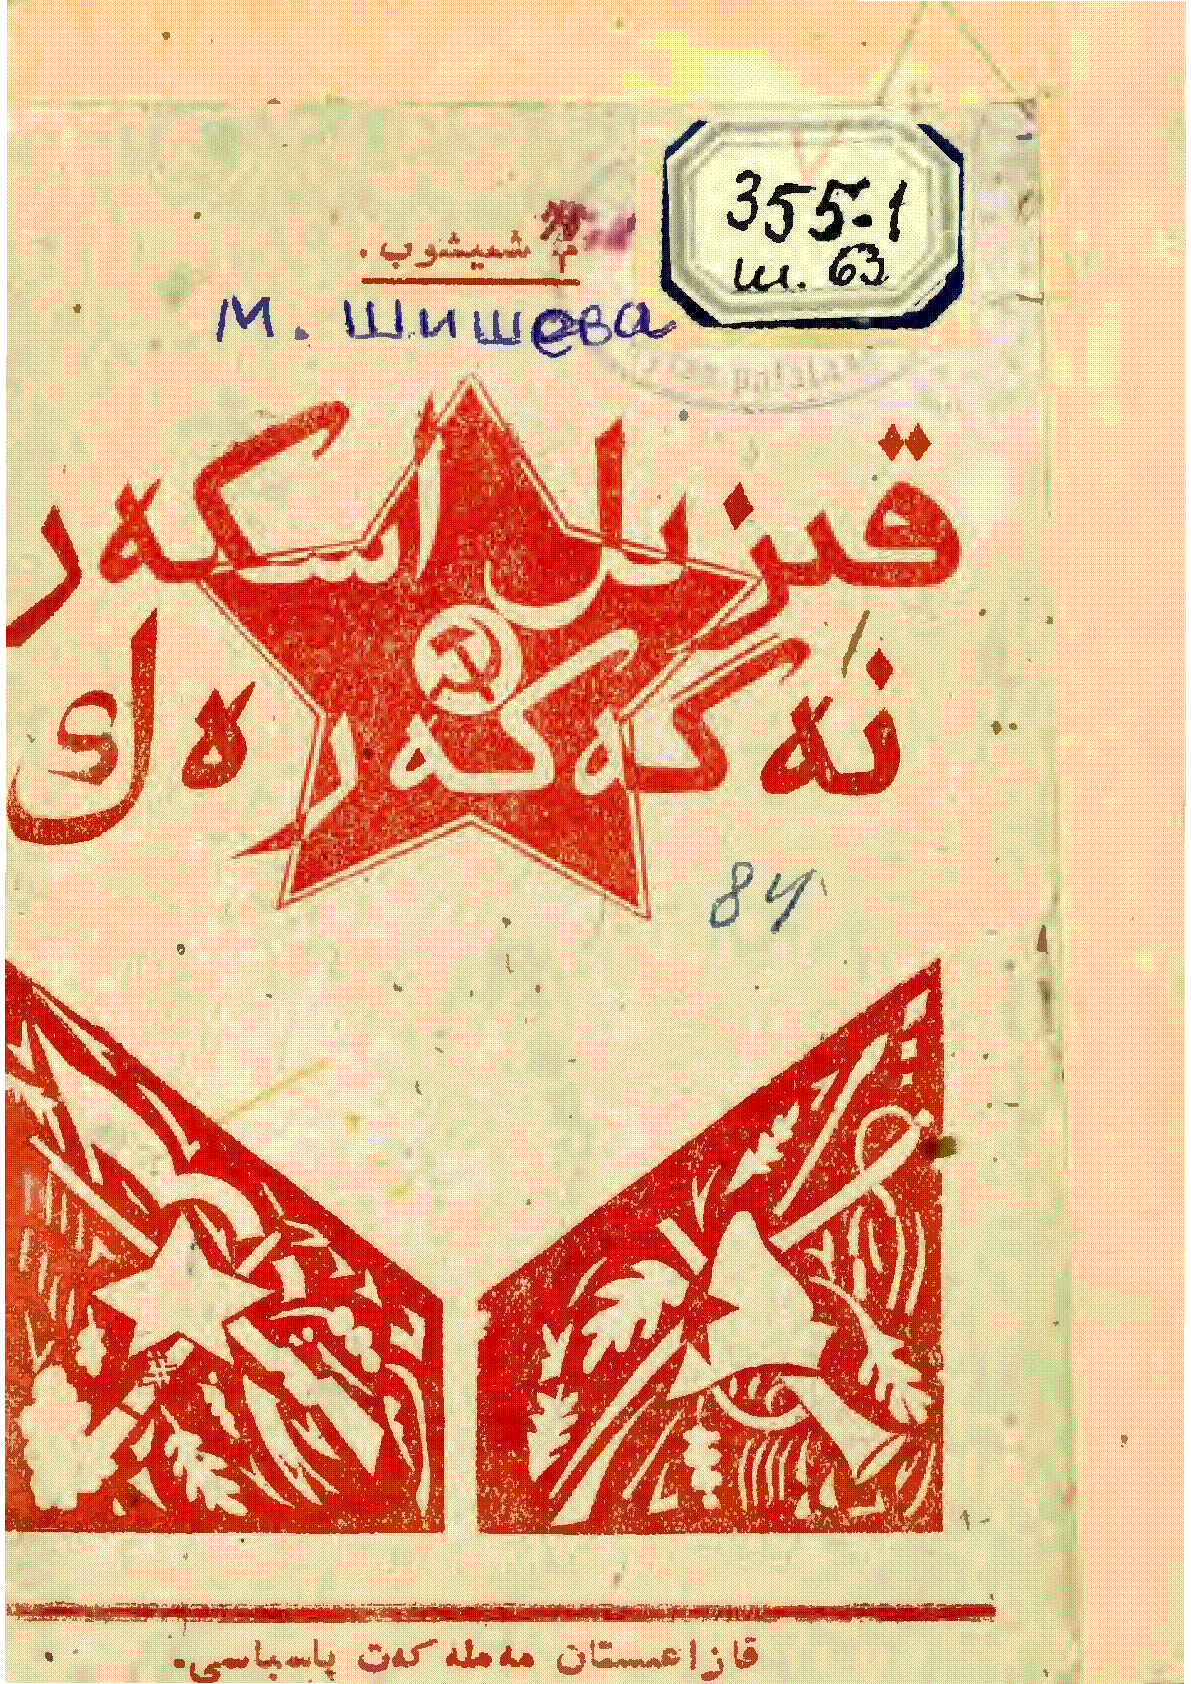 355-1
ш. 63
م شيشوب.
М. Шишева
قىزىل اسكەر
نەگە كەرەك
84
قازاعىستان مەملەكەت باسپاسى.